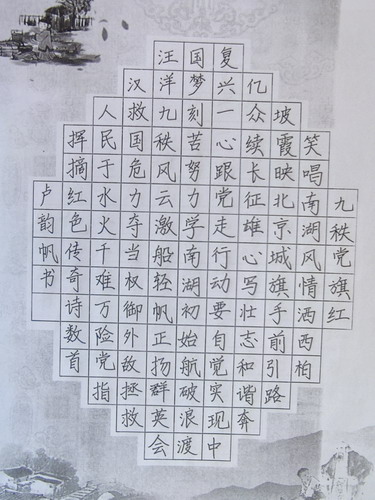 九秩党旗红
笑唱南湖风情洒西柏
坡霞映北京城旗手前引路
亿众续长征雄心写壮志和谐奔
复兴一心跟党走行动要自觉实现中
国梦刻苦努力学南湖初始航破浪渡
汪洋九秩风云激船轻帆正扬群英会
汉救国危力夺当权御外敌拯救
人民于水火千难万险党指
挥摘红色传奇诗数首
卢韵帆书